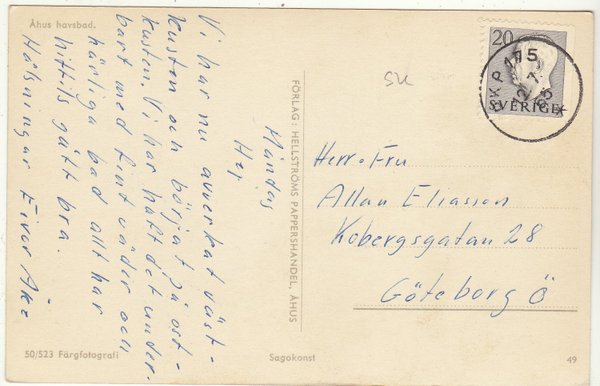 Åhus havsbad.
Måndag
Hej
Vi har nu avverkat väst-
kusten och börjat på ost-
kusten. Vi har haft det under-
bart med fint väder och
härliga bad allt har
hittils gått bra.
Hälsningar Eivor Åke
FÖRLAG: HELLSTRÖMS PAPPERSHANDEL, ÅHUS
SU
20
SVERIGE
PKP 115
12 7
Herr o Fru
Allan Eliasson
Kobergsgatan 28
Göteborg Ö
50/523 Färgfotografi
Sagokonst
49